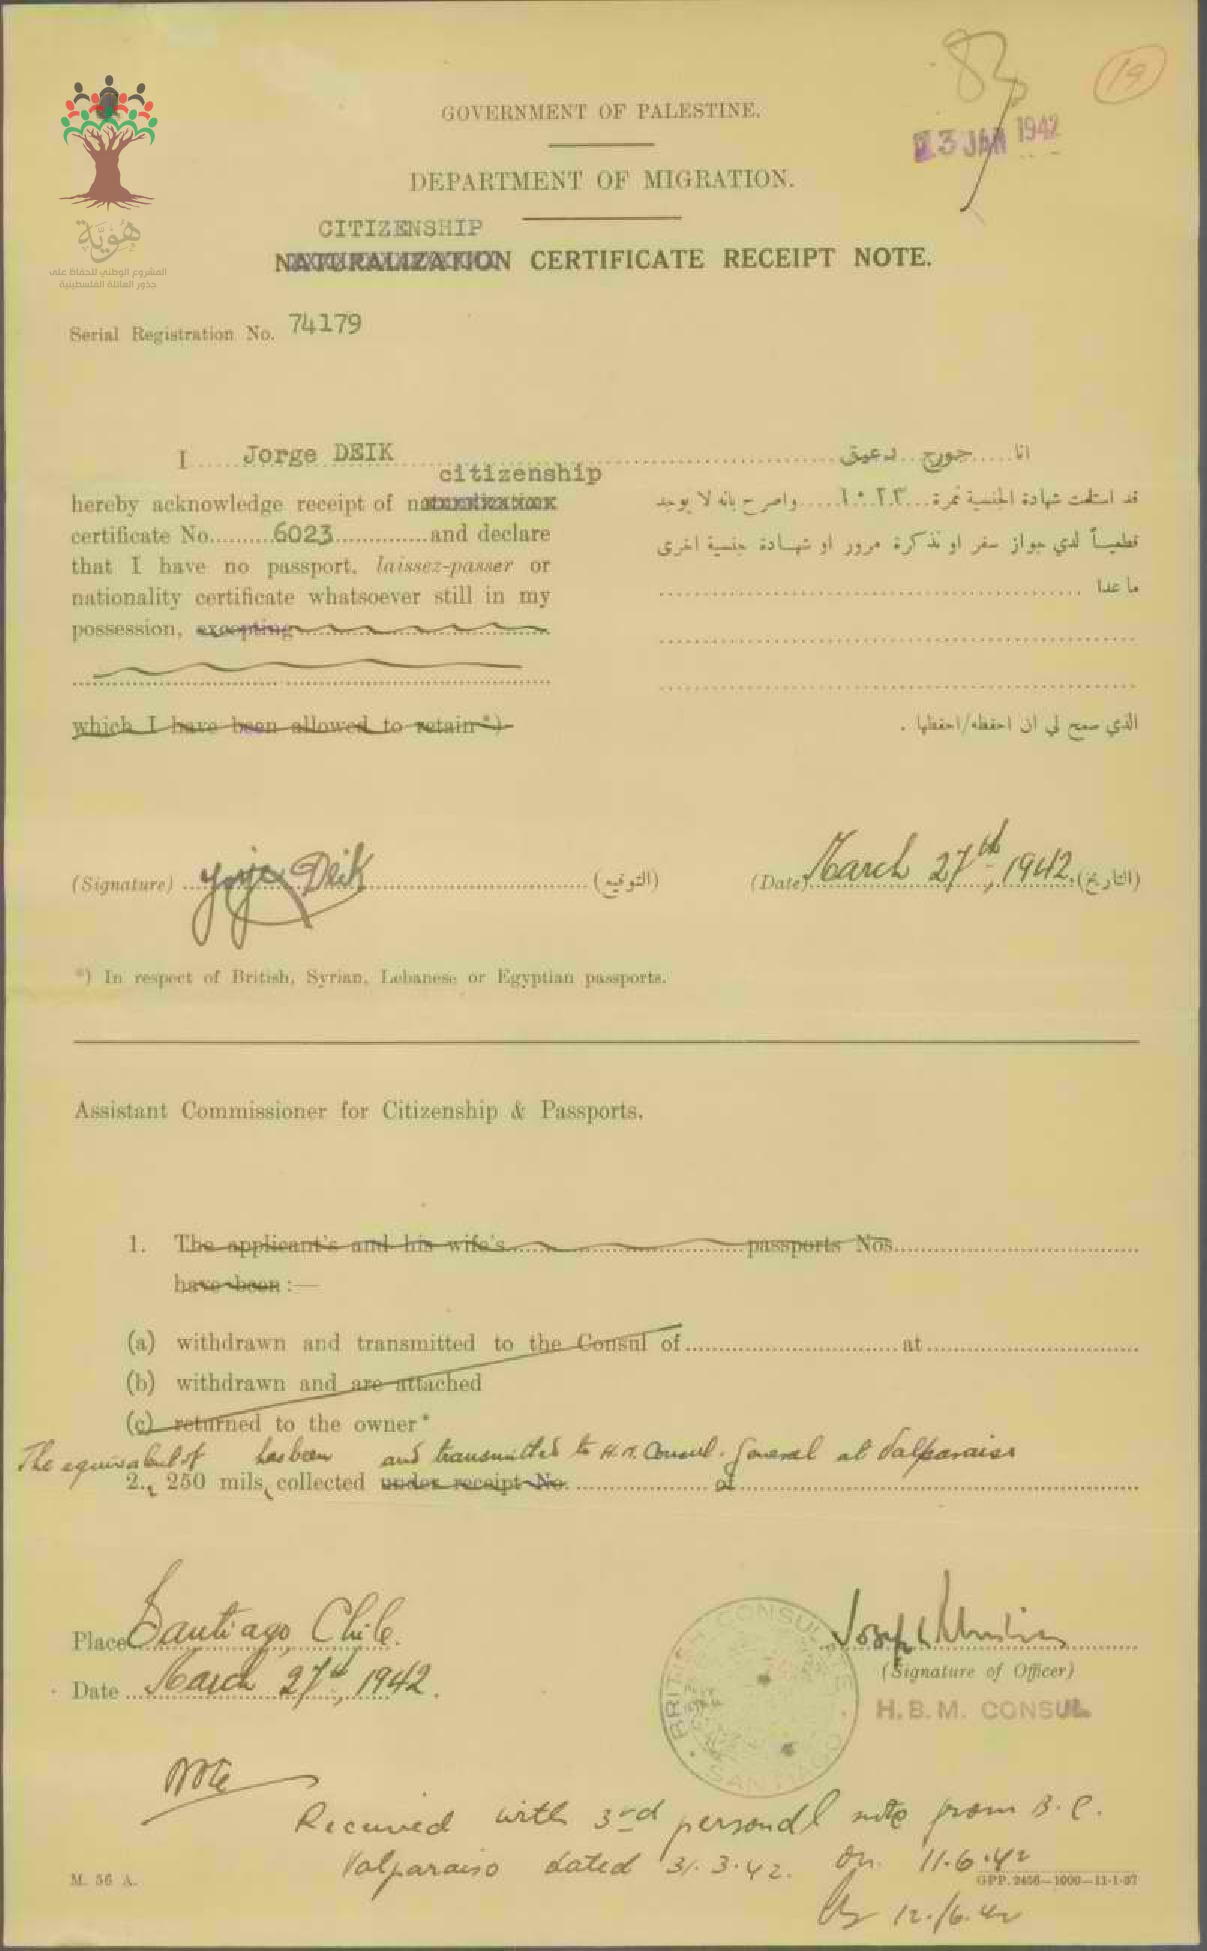 83
19
GOVERNMENT OF PALESTINE.
3 JAN 1942
DEPARTMENT OF MIGRATION.
CITIZENSHIP
NATURALIZATION CERTIFICATE RECEIPT NOTE.
هُوِيَّة
المشروع الوطني للحفاظ على
جذور العائلة الفلسطينية
Serial Registration No. 74179
I Jorge DEIK
citizenship
hereby acknowledge receipt of naturalization
certificate No. 6023 and declare
that I have no passport, laissez-passer or
nationality certificate whatsoever still in my
possession, excepting
which I have been allowed to retain*)
انا جورج دعيق
قد استلمت شهادة الجنسية نمرة ٦٠٢٣ واصرح بانه لا يوجد
قطعياً لدي جواز سفر او تذكرة مرور او شهادة جنسية اخرى
ما عدا
الذي سمح لي ان احفظه/احفظها .
(Signature) Jorje Deik (التوقيع)
(Date) March 27th, 1942. (التاريخ)
*) In respect of British, Syrian, Lebanese or Egyptian passports.
Assistant Commissioner for Citizenship & Passports.
1. The applicant's and his wife's passports Nos.
have been :—
(a) withdrawn and transmitted to the Consul of at
(b) withdrawn and are attached
(c) returned to the owner*
The equivalent of has been and transmitted to H.M. Consul-General at Valparaiso
2. 250 mils, collected under receipt No. of
Place Santiago, Chile.
Date March 27th, 1942.
BRITISH CONSULATE
SANTIAGO
(Signature of Officer)
H.B.M. CONSUL
Note
Received with 3rd personal note from B.C.
Valparaiso dated 31.3.42. On 11.6.42
12/6.42
M. 56 A.
GPP. 2456—1000—11-1-37